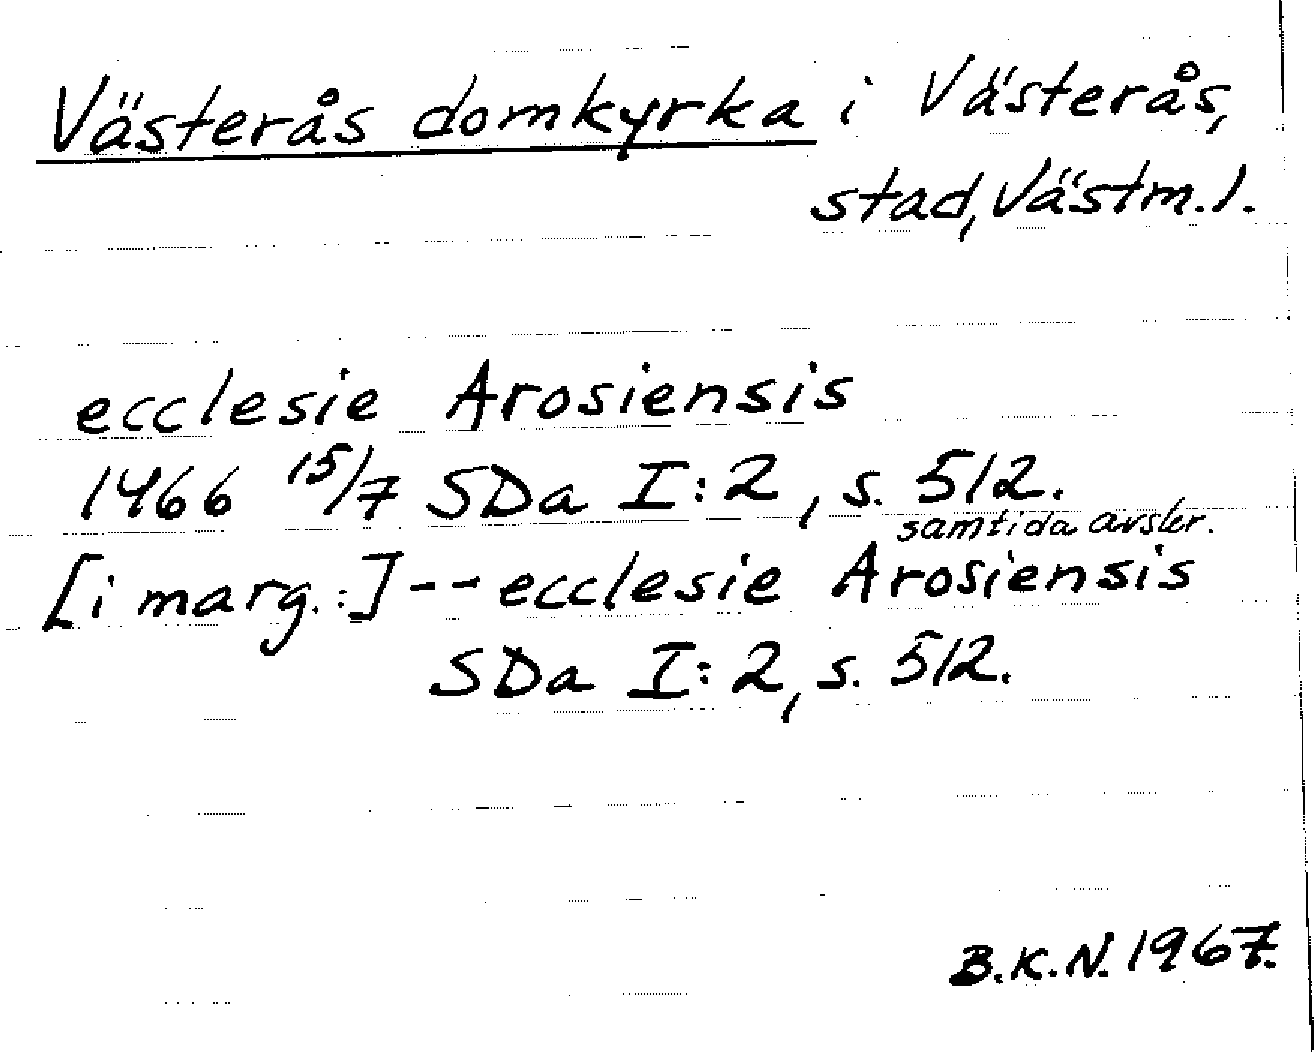 Västerås domkyrka i Västerås,
stad, Västm.l.
ecclesie Arosiensis
1466 15/7 SDa I:2, s. 512.
samtida avskr.
[i marg.:] -- ecclesie Arosiensis
SDa I:2, s. 512.
B.K.N. 1967.